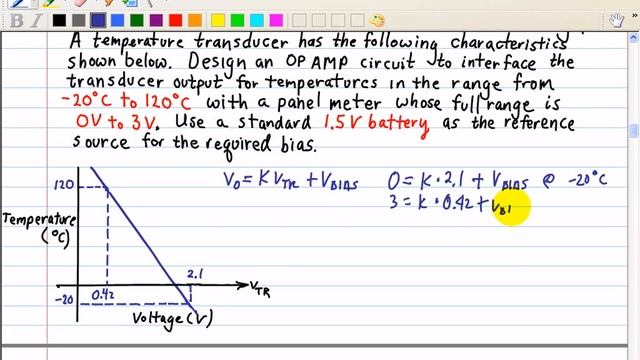 A temperature transducer has the following characteristics
shown below. Design an OP AMP circuit to interface the
transducer output for temperatures in the range from
-20°C to 120°C with a panel meter whose full range is
0V to 3V. Use a standard 1.5V battery as the reference
source for the required bias.
V₀ = K V_TR + V_BIAS
0 = K · 2.1 + V_BIAS @ -20°C
3 = K · 0.42 + V_BI
120
Temperature
(°C)
2.1
-20
0.42
V_TR
Voltage (V)